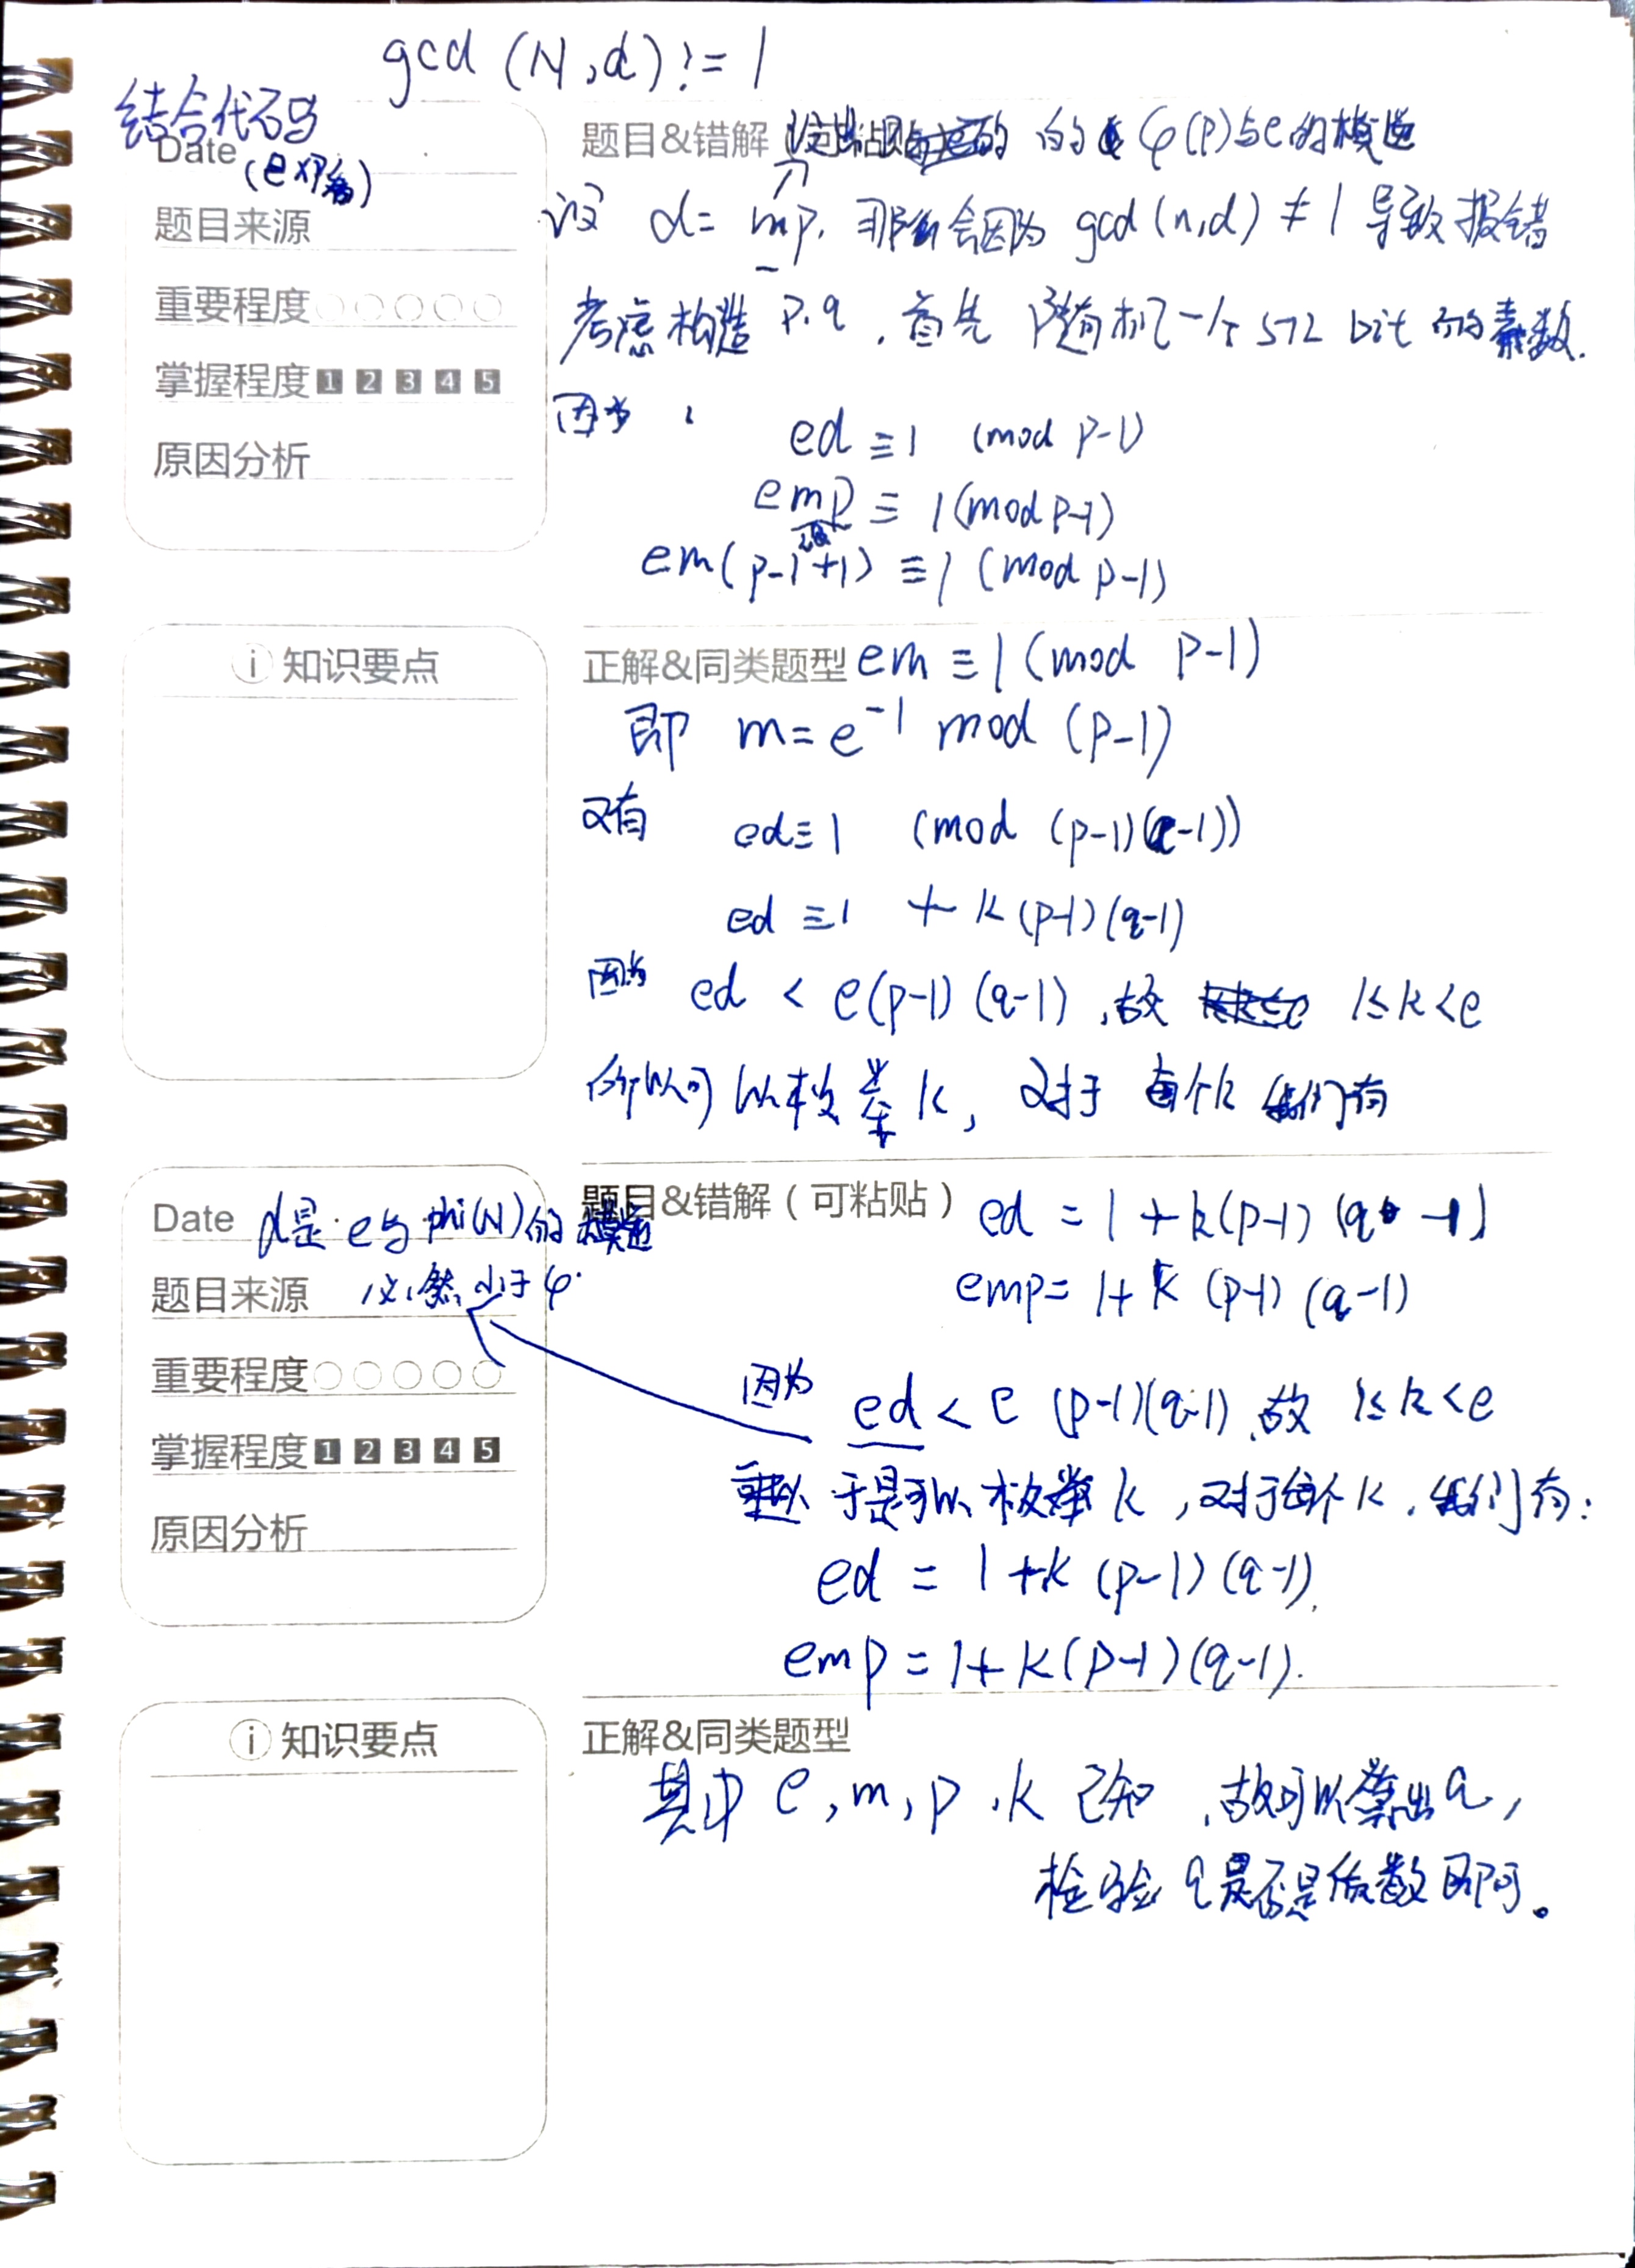 gcd (N,d) != 1
结合代码
Date
(e很小)
题目来源
重要程度
掌握程度 1 2 3 4 5
原因分析
题目&错解 的 φ(p)与e的模逆
设 d = mp, 那么会因为 gcd(n,d) ≠ 1 导致报错
考虑构造 p.q , 首先 p随机一个 512 bit 的素数.
因为 :
ed ≡ 1 (mod p-1)
emp ≡ 1 (mod p-1)
em(p-1+1) ≡ 1 (mod p-1)
i 知识要点
正解&同类题型 em ≡ 1 (mod p-1)
即 m = e⁻¹ mod (p-1)
又有 ed ≡ 1 (mod (p-1)(q-1))
ed ≡ 1 + k(p-1)(q-1)
因为 ed < e(p-1)(q-1) ,故 1≤k<e
所以可以枚举k, 对于每个k 我们有
Date d是 e与 phi(N)的模逆
必然小于 φ.
题目来源
重要程度
掌握程度 1 2 3 4 5
原因分析
题目&错解（可粘贴） ed = 1 + k(p-1)(q-1)
emp = 1 + k (p-1)(q-1)
因为 ed < e (p-1)(q-1) ,故 1≤k<e
于是可以枚举k ,对于每个k , 我们有:
ed = 1 + k (p-1)(q-1).
emp = 1 + k(p-1)(q-1).
i 知识要点
正解&同类题型
其中 e, m, p , k 已知 , 故可以算出q,
检验 q是否是素数即可。